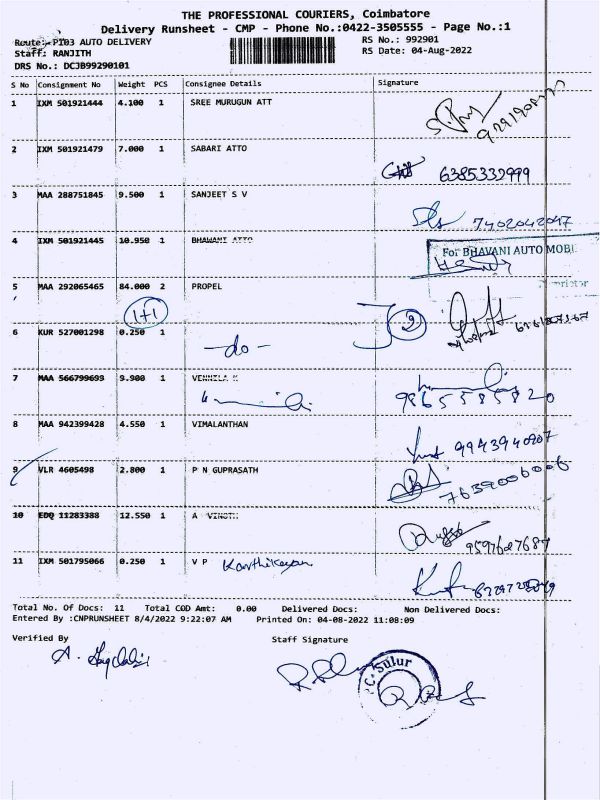 THE PROFESSIONAL COURIERS, Coimbatore
Delivery Runsheet - CMP - Phone No.:0422-3505555 - Page No.:1
Route:- PT03 AUTO DELIVERY RS No.: 992901
Staff: RANJITH RS Date: 04-Aug-2022
DRS No.: DCJB99290101
S No Consignment No Weight PCS Consignee Details Signature
1 IXM 501921444 4.100 1 SREE MURUGUN ATT
2 IXM 501921479 7.000 1 SABARI ATTO
6385333999
3 MAA 288751845 9.500 1 SANJEET S V
7402042047
4 IXM 501921445 10.950 1 BHAWANI ATTO
For BHAVANI AUTO MOBI
5 MAA 292065465 84.000 2 PROPEL
1+1
6 KUR 527001298 0.250 1
-do-
7 MAA 566799699 9.900 1 VENNILA K
9865585820
8 MAA 942399428 4.550 1 VIMALANTHAN
9943940907
9 VLR 4605498 2.800 1 P N GUPRASATH
7639006006
10 EDQ 11283388 12.550 1 A VINOTH
9597607687
11 IXM 501795066 0.250 1 V P Karthikeyan
Total No. Of Docs: 11 Total COD Amt: 0.00 Delivered Docs: Non Delivered Docs:
Entered By :CNPRUNSHEET 8/4/2022 9:22:07 AM Printed On: 04-08-2022 11:08:09
Verified By Staff Signature
Sulur